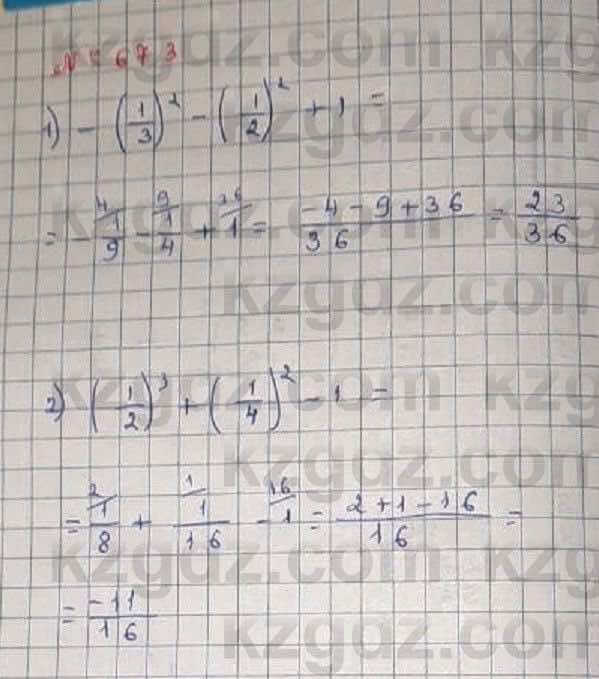 № 673
1) - (1/3)² - (-1/2)² + 1 =
= - 1/9 - 1/4 + 1 = (-4-9+36)/36 = 23/36
2) (-1/2)³ + (-1/4)² - 1 =
= 1/8 + 1/16 - 1 = (2+1-16)/16 =
= -11/16
kzgdz.com